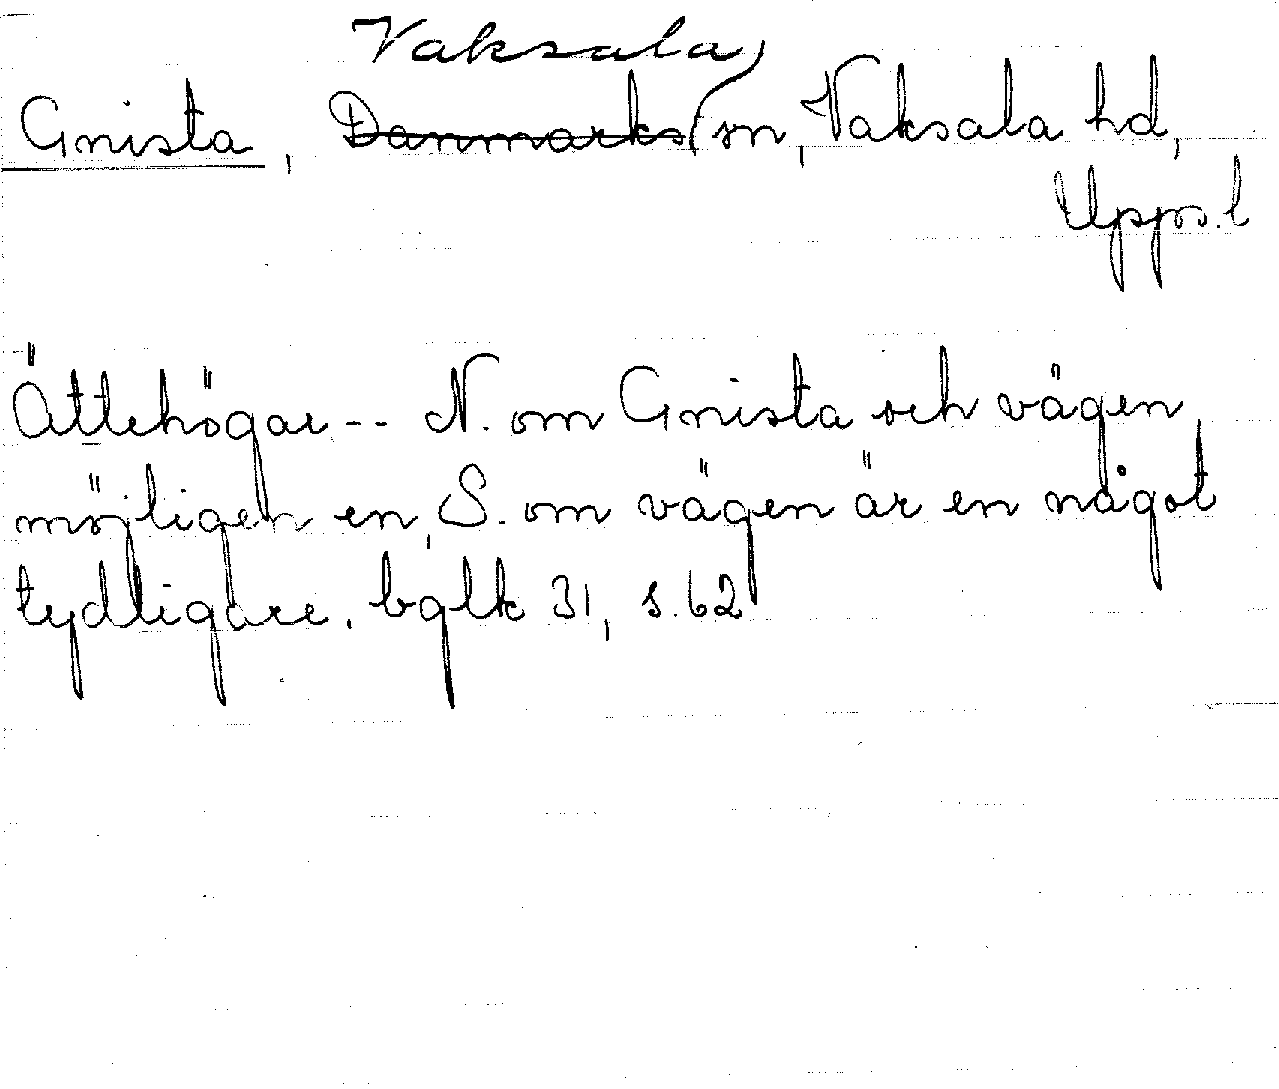 Vaksala
Gnista, Danmarks sn, Vaksala hd,
Upps. l
Ättehögar -- N. om Gnista och vägen
möjligen en, S. om vägen är en något
tydligare. bglk 31, s. 62